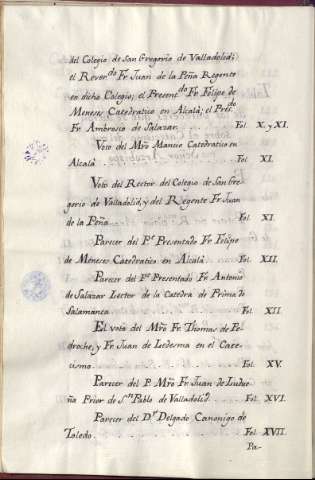 del Colegio de San Gregorio de Valladolid;
el Rever.do Fr. Juan de la Peña Regente
en dicho Colegio; el Presen.do Fr. Felipe de
Meneses Catedratico en Alcalà; el Pres.do
Fr. Ambrosio de Salazar. Fol. X. y XI.
Voto del Mro Mancio Catedratico en
Alcalà. Fol. XI.
Voto del Rector del Colegio de San Gre-
gorio de Valladolid, y del Regente Fr. Juan
de la Peña. Fol. XI.
Parecer del P.e Presentado Fr. Felipe
de Meneses Catedratico en Alcalà. Fol. XII.
Parecer del P.e Presentado Fr. Antonio
de Salazar Lector de la Catedra de Prima de
Salamanca. Fol. XII.
El voto del Mro Fr. Thomas de Pe-
droche, y Fr. Juan de Ledesma en el Cate-
cismo. Fol. XV.
Parecer del P. Mro Fr. Juan de Ludue-
ña Prior de S.n Pablo de Valladolid. Fol. XVI.
Parecer del D.r Delgado Canonigo de
Toledo. Fol. XVII.
Pa-